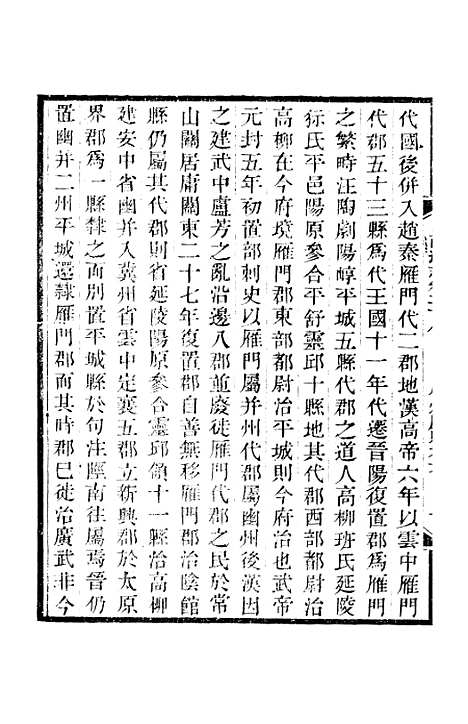 代國後併入趙秦雁門代二郡地漢高帝六年以雲中雁門
代郡五十三縣爲代王國十一年代遷晉陽復置郡爲雁門
之繁畤汪陶劇陽崞平城五縣代郡之道人高柳班氏延陵
狋氏平邑陽原參合平舒靈邱十縣地其代郡西部都尉治
高柳在今府境雁門郡東部都尉治平城則今府治也武帝
元封五年初置部刺史以雁門屬并州代郡屬幽州後漢因
之建武中盧芳之亂沿邊八郡並廢徙雁門代郡之民於常
山關居庸關東二十七年復置郡自善無移雁門郡治陰館
縣仍屬其代郡則省延陵陽原參合靈邱領十一縣治高柳
建安中省幽并入冀州省雲中定襄五郡立新興郡於太原
界郡爲一縣隸之而別置平城縣於句注陘南往屬焉晉仍
置幽并二州平城還隸雁門郡而其時郡已徙治廣武非今